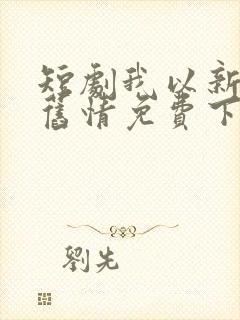 短劇我以新
舊情免費下
劉先